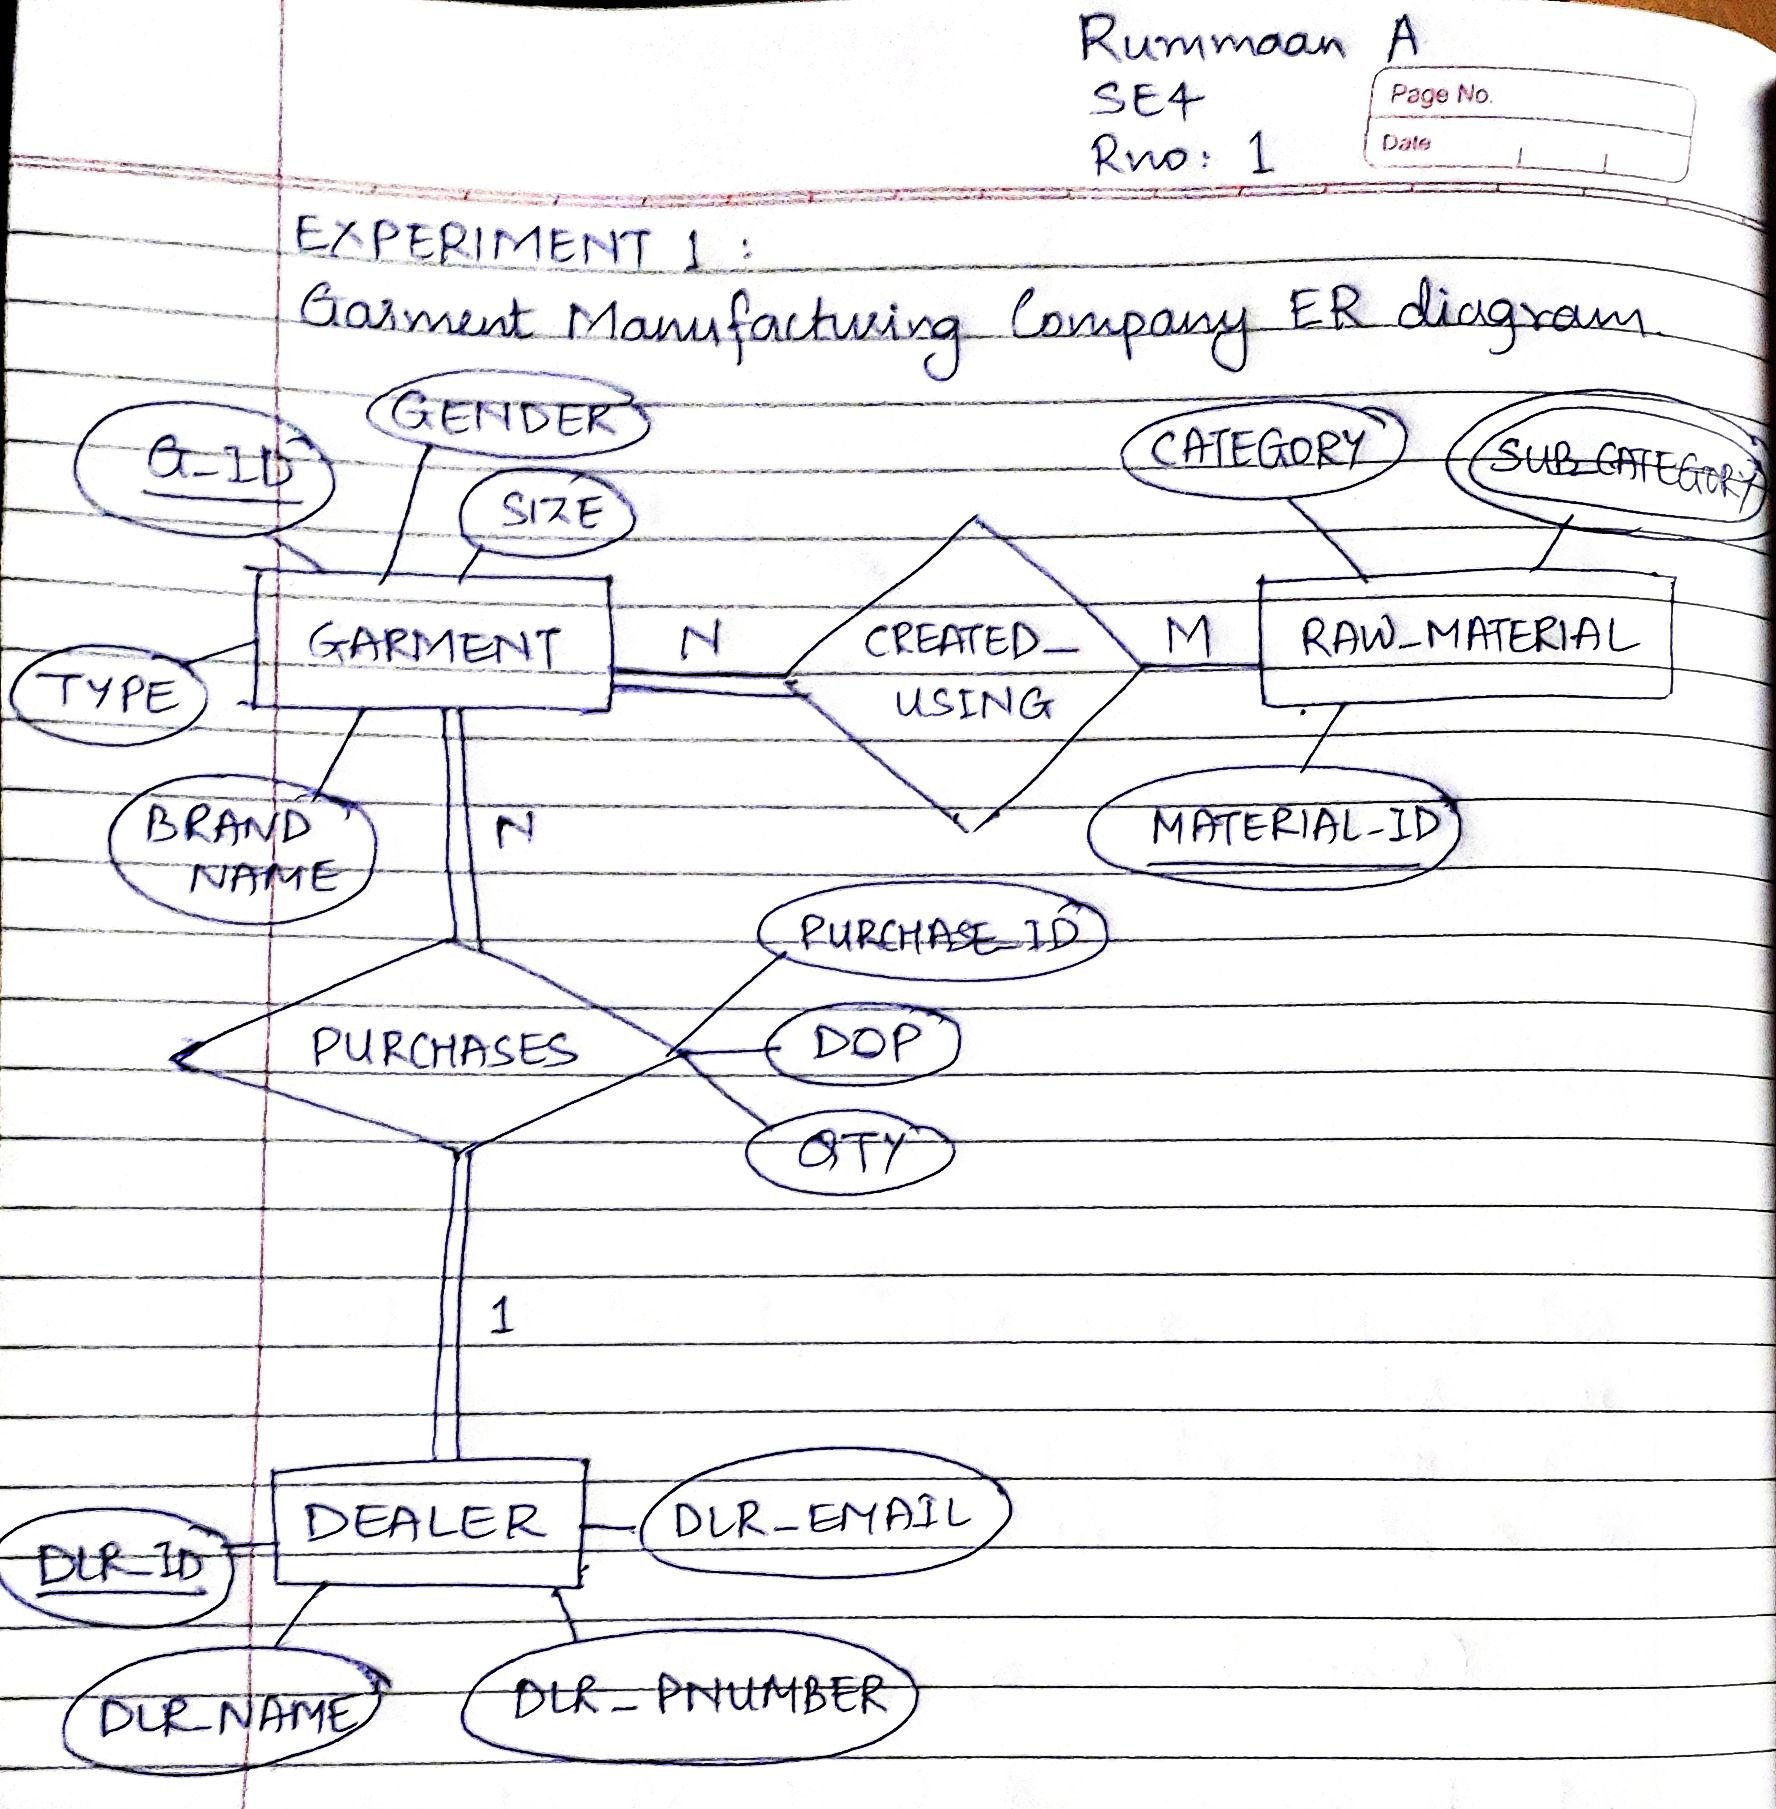 Rummaan A
SE4
Rno: 1
Page No.
Date
EXPERIMENT 1 :
Garment Manufacturing Company ER diagram.
G_ID
GENDER
SIZE
CATEGORY
SUB_CATEGORY
GARMENT
N
CREATED_
USING
M
RAW_MATERIAL
TYPE
BRAND
NAME
N
MATERIAL_ID
PURCHASE_ID
PURCHASES
DOP
QTY
1
DEALER
DLR_EMAIL
DLR_ID
DLR_NAME
DLR_PNUMBER